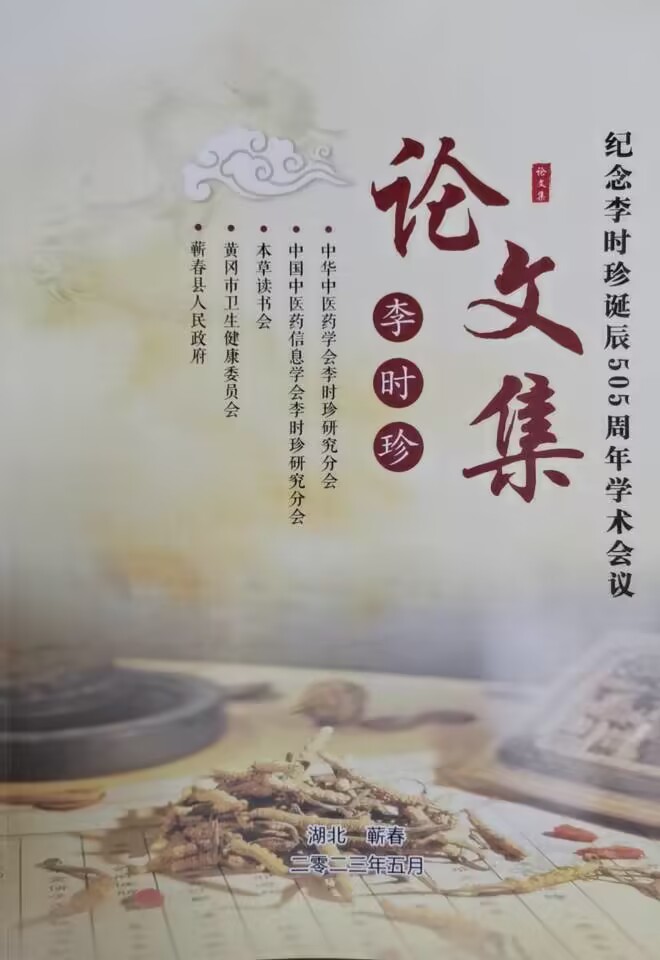 纪念李时珍诞辰505周年学术会议
论文集
论文集
李时珍
•中华中医药学会李时珍研究分会
•中国中医药信息学会李时珍研究分会
•本草读书会
•黄冈市卫生健康委员会
•蕲春县人民政府
湖北 蕲春
二零二三年五月